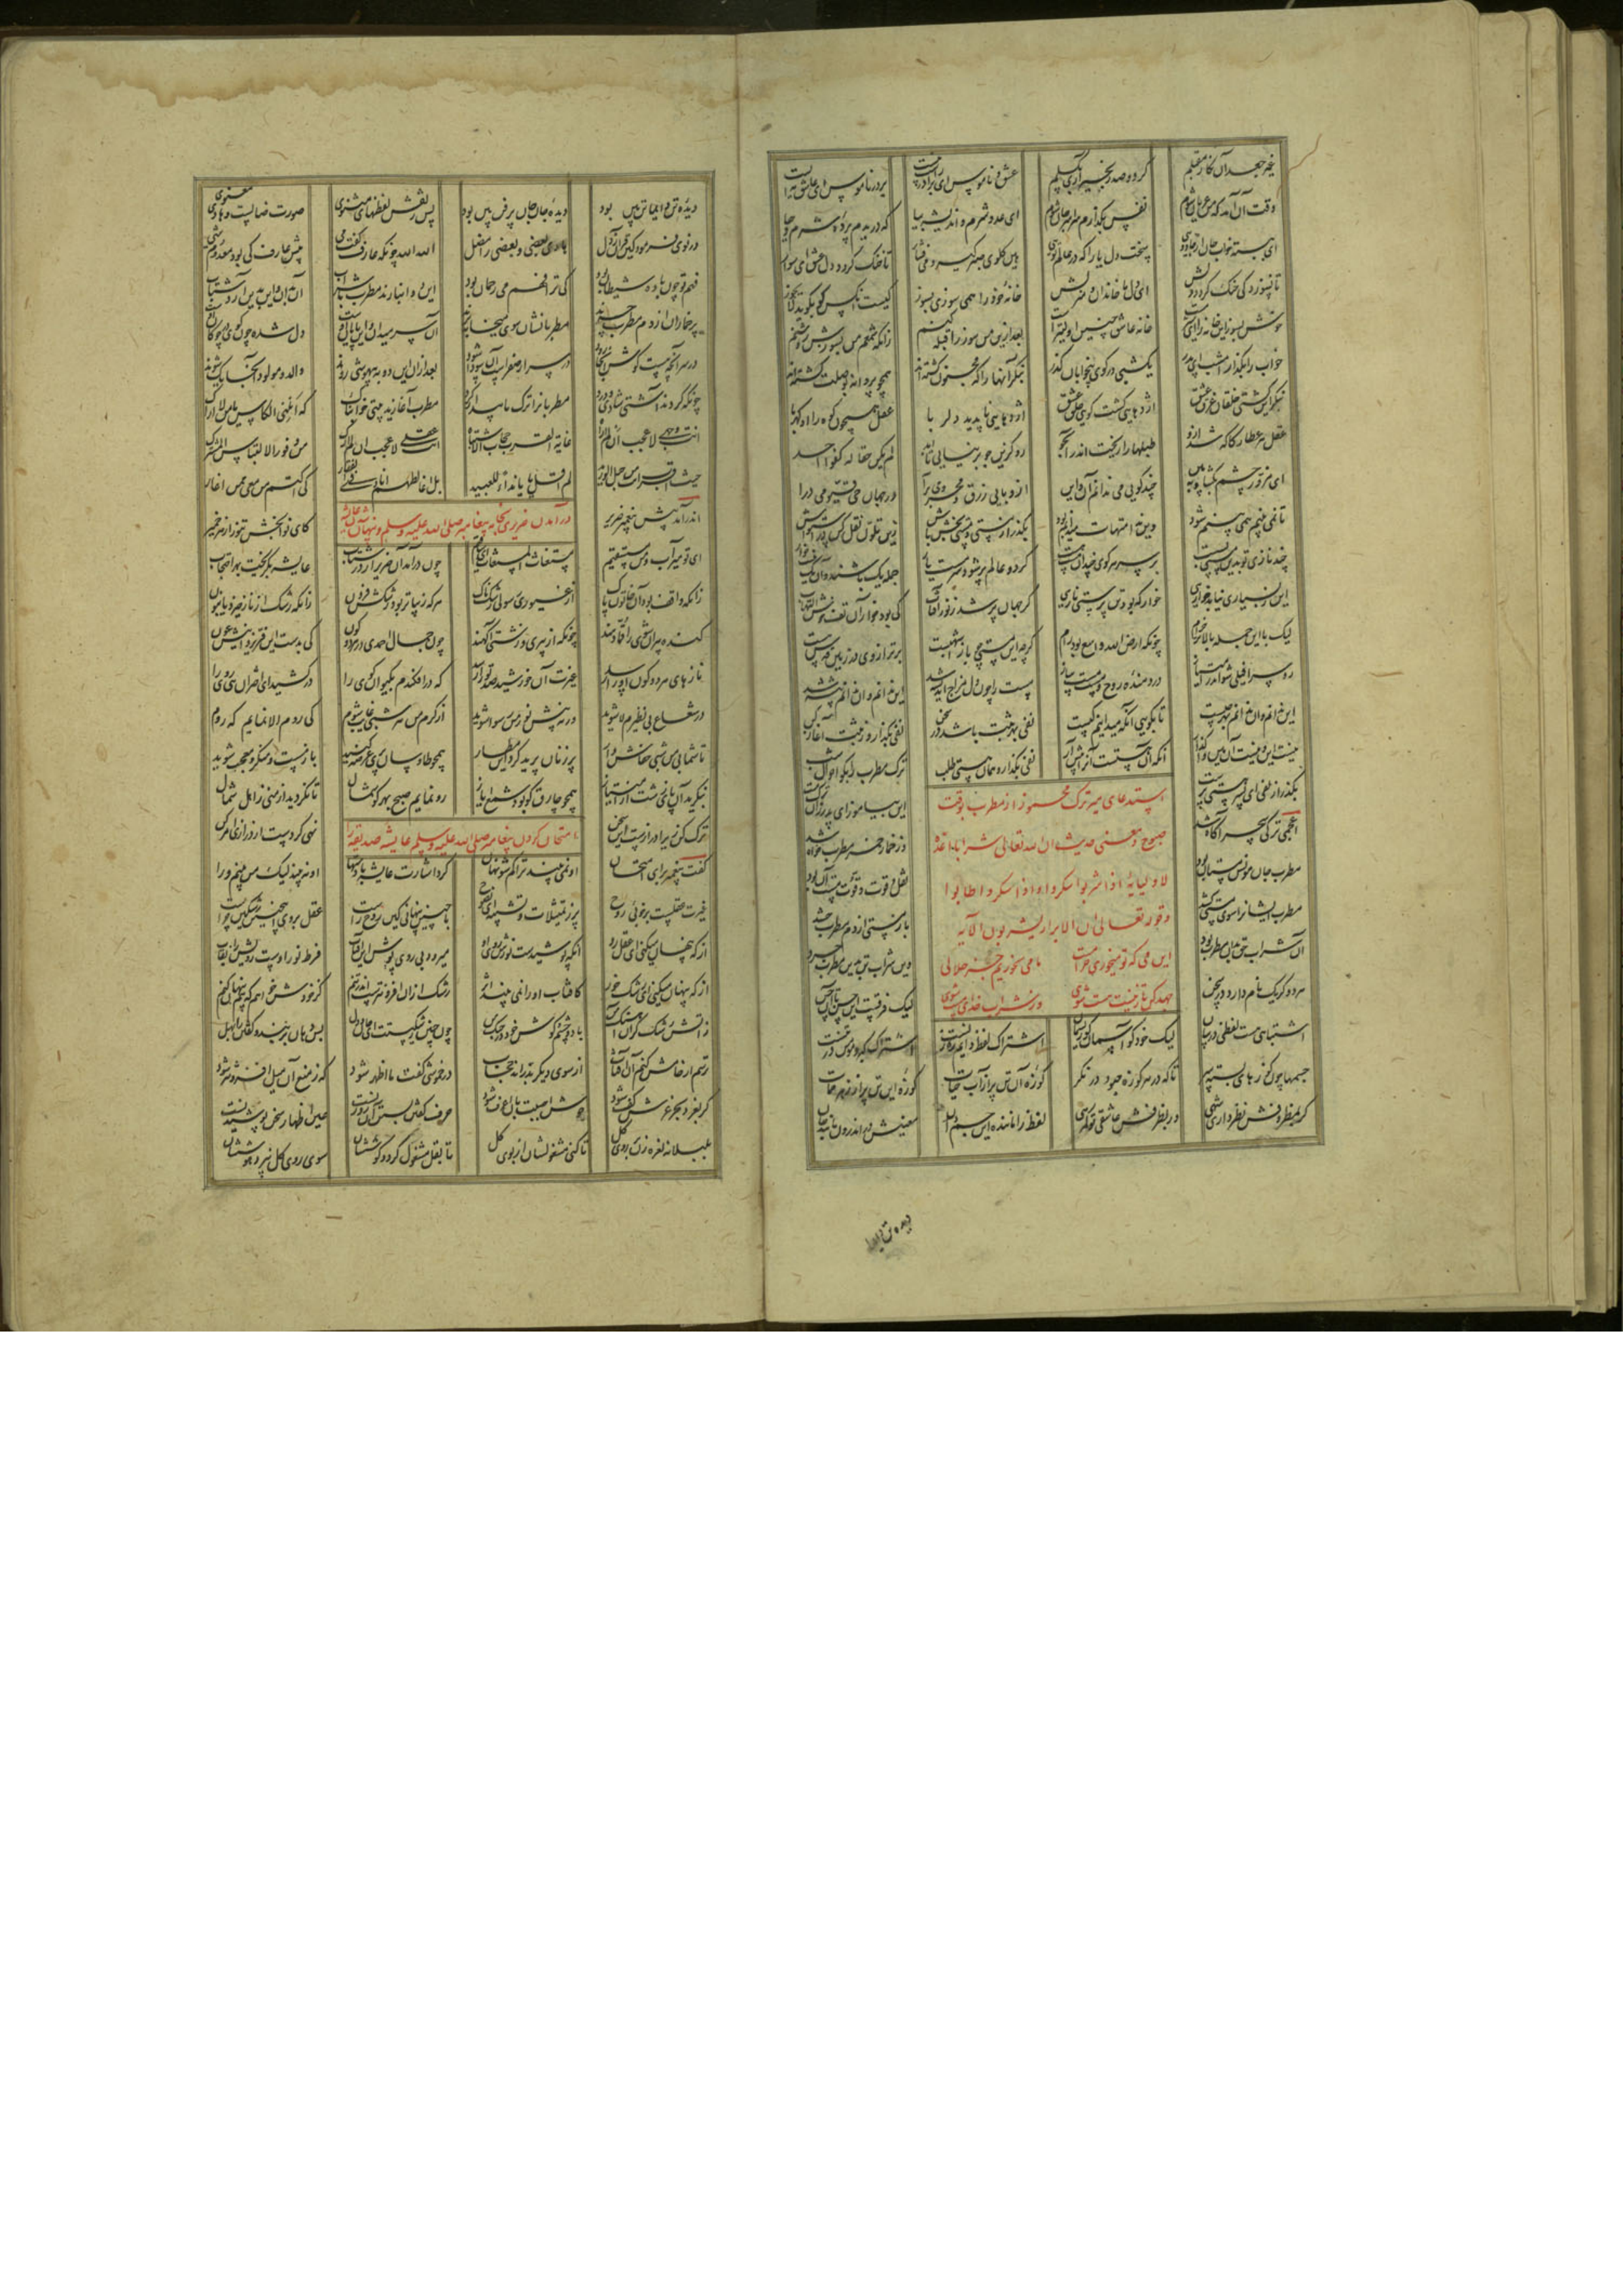 غیر جعد آن نگار مقبلم گر دو صد زنجیر آری بگسلم عشق و ناموس ای برادر راست نیست بر در ناموس ای عاشق مه ایست
وقت آن آمد که من عریان شوم نقش بگذارم سراسر جان شوم ای عدو شرم و اندیشه بیا که دریدم پرده شرم و حیا
ای ببسته خواب جان از جادوی سخت دل یارا که در عالم توی هین گلوی صبر گیر و می فشار تا خنک گردد دل عشق ای سوار
تا نسوزد کی خنک گردد دلش ای دل ما خاندان و منزلش خانه خود را همی سوزی بسوز کیست آنکس کو بگوید لا یجوز
خوش بسوز این خانه را ای شیر مست خانه عاشق چنین اولیترست بعد ازین من سوز را قبله کنم زانکه شمعم من بسوزش روشنم
خواب را بگذار امشب ای پدر یکشبی در کوی بیخوابان گذر بنگر آنها را که مجنون گشته اند همچو پروانه بوصلت کشته اند
بنگر این کشتی خلقان غرق عشق اژدهایی گشت گویی حلق عشق اژدهایی ناپدید دلربا عقل همچون کوه را او کهربا
عقل هر عطار کاگه شد ازو طبلها را ریخت اندر آب جو رو کزین جو برنیایی تا ابد لم یکن حقا له کفوا احد
ای مزور چشم بگشای و ببین چند گویی می ندانم آن و این از وبای زرق و محرومی برآ در جهان حی و قیومی درآ
تا نمی بینم همی بینم شود وین ندانمهات میدانم بود بگذر از مستی و مستی بخش باش زین تلون نقل کن در استواش
چند نازی تو بدین مستی بس است بر سر هر کوی چندان مست هست گر دو عالم پر شود سرمست یار جمله یک باشند و آن یک نیست خوار
این ز بسیاری نیابد خواریی خوار که بود تن پرستی ناریی گر جهان پر شد ز نور آفتاب کی بود خوار آن تف خوش التهاب
لیک با این جمله بالاتر خرام چونکه ارض الله واسع بود و رام گرچه این مستی چو باز اشهبست برتر از وی در زمین قدس هست
رو سرافیلی شو اندر امتیاز در دمنده روح و مست و مست ساز مست را چون دل مزاج اندیشه شد این ندانم وان ندانم پیشه شد
این ندانم وان ندانم بهر چیست تا بگویی آنکه میدانیم کیست نفی بهر ثبت باشد در سخن نفی بگذار و ز ثبت آغاز کن
نیست این و نیست آن هین واگذار آنکه آن هستست آنرا پیش آر نفی بگذار و همان هستی طلب ترک مطرب را بگو احوال شب
بگذر از نفی ای پسر هستی پرست این بیاموز ای پدر زان ترک مست
استدعای میر ترک مخمور از مطرب بوقت
صبوح و معنی حدیث ان لله تعالی شرابا اعده
لاولیایه اذا شربوا سکروا و اذا سکروا طابوا
و قوله تعالی ان الابرار یشربون الآیه
این می که تو میخوری حرامست ما می نخوریم جز حلالی
جهد کن تا ز نیست هست شوی وز شراب خدای مست شوی
اعجمی ترکی سحر آگاه شد وز خمار خمر مطرب خواه شد
مطرب جان مونس مستان بود نقل و قوت و قوت مست آن بود
مطرب ایشانرا سوی مستی کشد باز مستی از دم مطرب چشد
آن شراب حق بدان مطرب برد وین شراب تن بدین مطرب چرد
هر دو گر یک نام دارد در سخن لیک فرقست این حسن تا آن حسن
اشتباهی هست لفظی در بیان لیک خود کو آسمان کو ریسمان اشتراک لفظ دایم ره زنست اشتراک گبر و مومن در تنست
جسمها چون کوزهای بسته سر تا که در هر کوزه چبود در نگر کوزه آن تن پر از آب حیات کوزه این تن پر از زهر ممات
گر بمظروفش نظر داری شهی ور بظرفش عاشقی تو گمرهی لفظ را ماننده این جسم دان معنیش در اندرون مانند جان
دیده تن دایما
دیده تن دایما تن بین بود دیده جان جان پر فن بین بود پس ز نقش لفظهای مثنوی صورت ضالست و هادی معنوی
در نوی فرمود کین قرآن ز دل هادی بعضی و بعضی را مضل الله الله چونکه عارف گفت می پیش عارف کی بود معدوم شی
فهم تو چون باده شیطان بود کی ترا فهم می رحمان بود این دو انبازند مطرب با شراب آن بدان و این بدین آرد شتاب
پر خماران از دم مطرب چرند مطربانشان سوی میخانه برند آن سر میدان و این پایان اوست دل شده چون گوی در چوگان اوست
در سر آنچه هست گوش آنجا رود در سر ار صفراست آن سودا شود بعد از آن این دو به بیهوشی روند والد و مولود آنجا یک شوند
چونکه کردند آشتی شادی و درد مطربانرا ترک ما بیدار کرد مطرب آغازید بیتی خوابناک که انلنی الکاس یا من لا اراک
انت وجهی لا عجب ان لا اراه غایة القرب حجاب الاشتباه انت عقلی لا عجب ان لم ارک من وفور الالتباس المشتبک
حیث اقرب انت من حبل الورید لم اقل یا یا نداء للبعید بل اغالطهم انادی فی القفار کی اکتم من معی ممن اغار
در آمدن ضریر بخانه پیغامبر صلی الله علیه وسلم و پنهان شدن عایشه
اندر آمد پیش پیغمبر ضریر کای نوابخش تنور هر خمیر
ای تو میر آب و من مستسقیم مستغاث المستغاث ای ساقیم چون درآمد آن ضریر از در شتاب عایشه بگریخت بهر احتجاب
زانکه واقف بود آن خاتون پاک از غیوری رسول رشکناک هر که زیباتر بود رشکش فزون زانکه رشک از ناز خیزد یا بنون
گنده پیران شوی را قما دهند چونکه از پیری و زشتی آگهند چون جمال احمدی در هر دو کون کی بدست ای فر یزدانیش عون
نازهای هر دو کون او را رسد غیرت آن خورشید صدتو را رسد که درافکندم بکیوان گوی را درکشید ای اختران هی روی را
در شعاع بی نظیرم لا شوید ورنه پیش نور من رسوا شوید از کرم من هر شبی غایب شوم کی روم الا نمایم که روم
تا شما بی من شبی خفاش وار پر زنان پرید گرد این مطار همچو طاوسان پری عرضه کنید باز مست و سرکش و معجب شوید
بنگرید آن پای زشت همچو چارق کو بود شمع ایاز رو نمایم صبح بهر گوشمال تا نگردید از منی ز اهل شمال
ترک کن زیرا درازست این سخن نهی کردست از درازی امر کن
امتحان کردن پیغامبر صلی الله علیه وسلم عایشه صدیقه را
گفت پیغمبر برای امتحان او نمی بیند ترا کم شو نهان کرد اشارت عایشه با دستها او نبیند لیک من بینم ورا
غیرت عقلست بر خوبی روح پر ز تمثیلات و تشبیه ای نصوح با چنین پنهانی کین روح راست عقل بر وی اینچنین رشکین چراست
از که پنهان میکنی ای عقل رو آنکه پوشیدست نورش روی او میرود بی روی پوش این آفتاب فرط نور اوست رویش را نقاب
از که پنهان میکنی ای رشک خور کافتاب او را نمی بیند اثر رشک از آن افزونترست اندر تنم کز خودش خواهم که هم پنهان کنم
ز آتش رشک گران آهنگ من با دو چشم و گوش خود در جنگ من چون چنین رشکیستت ای جان و دل پس دهان بربند و گفتن را بهل
ترسم ار خامش کنم آن آفتاب از سوی دیگر بدراند حجاب در خموشی گفت ما اظهر شود که ز منع آن میل افزونتر شود
گر بغرد بحر غرش کف شود جوش احببت بان اعرف شود حرف گفتن بستن آن روزنست عین اظهار سخن پوشیدنست
بلبلانه نعره زن بر روی گل تا کنی مشغولشان از بوی گل تا بقل مشغول گردد گوششان سوی روی گل نپرد هوششان